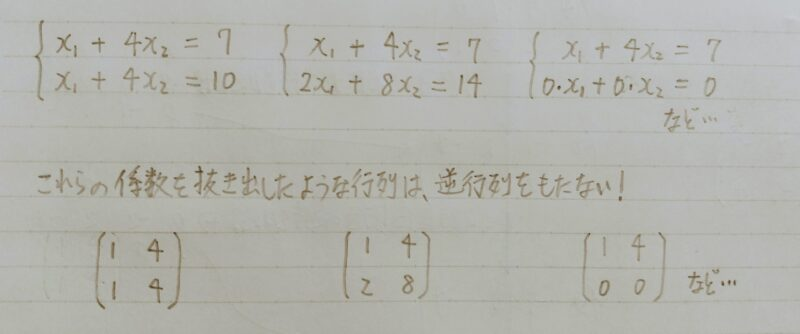 { x₁ + 4x₂ = 7 { x₁ + 4x₂ = 7 { x₁ + 4x₂ = 7
x₁ + 4x₂ = 10 2x₁ + 8x₂ = 14 0・x₁+0・x₂ = 0
など…
これらの係数を抜き出したような行列は、逆行列をもたない!
(1 4 (1 4 (1 4
1 4) 2 8) 0 0) など…